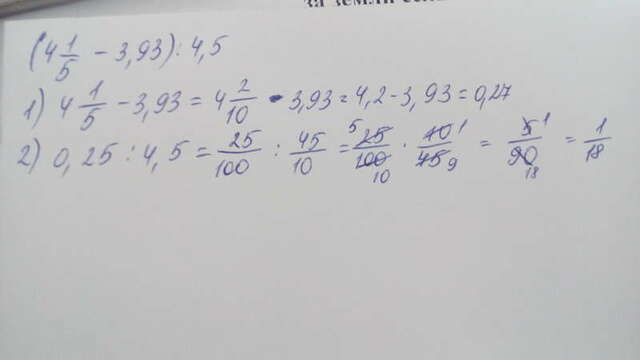 (4 1/5 - 3,93) : 4,5
1) 4 1/5 - 3,93 = 4 2/10 - 3,93 = 4,2 - 3,93 = 0,27
2) 0,25 : 4,5 = 25/100 : 45/10 = 5 25/100 10 · 10 1/45 9 = 5 1/90 18 = 1/18